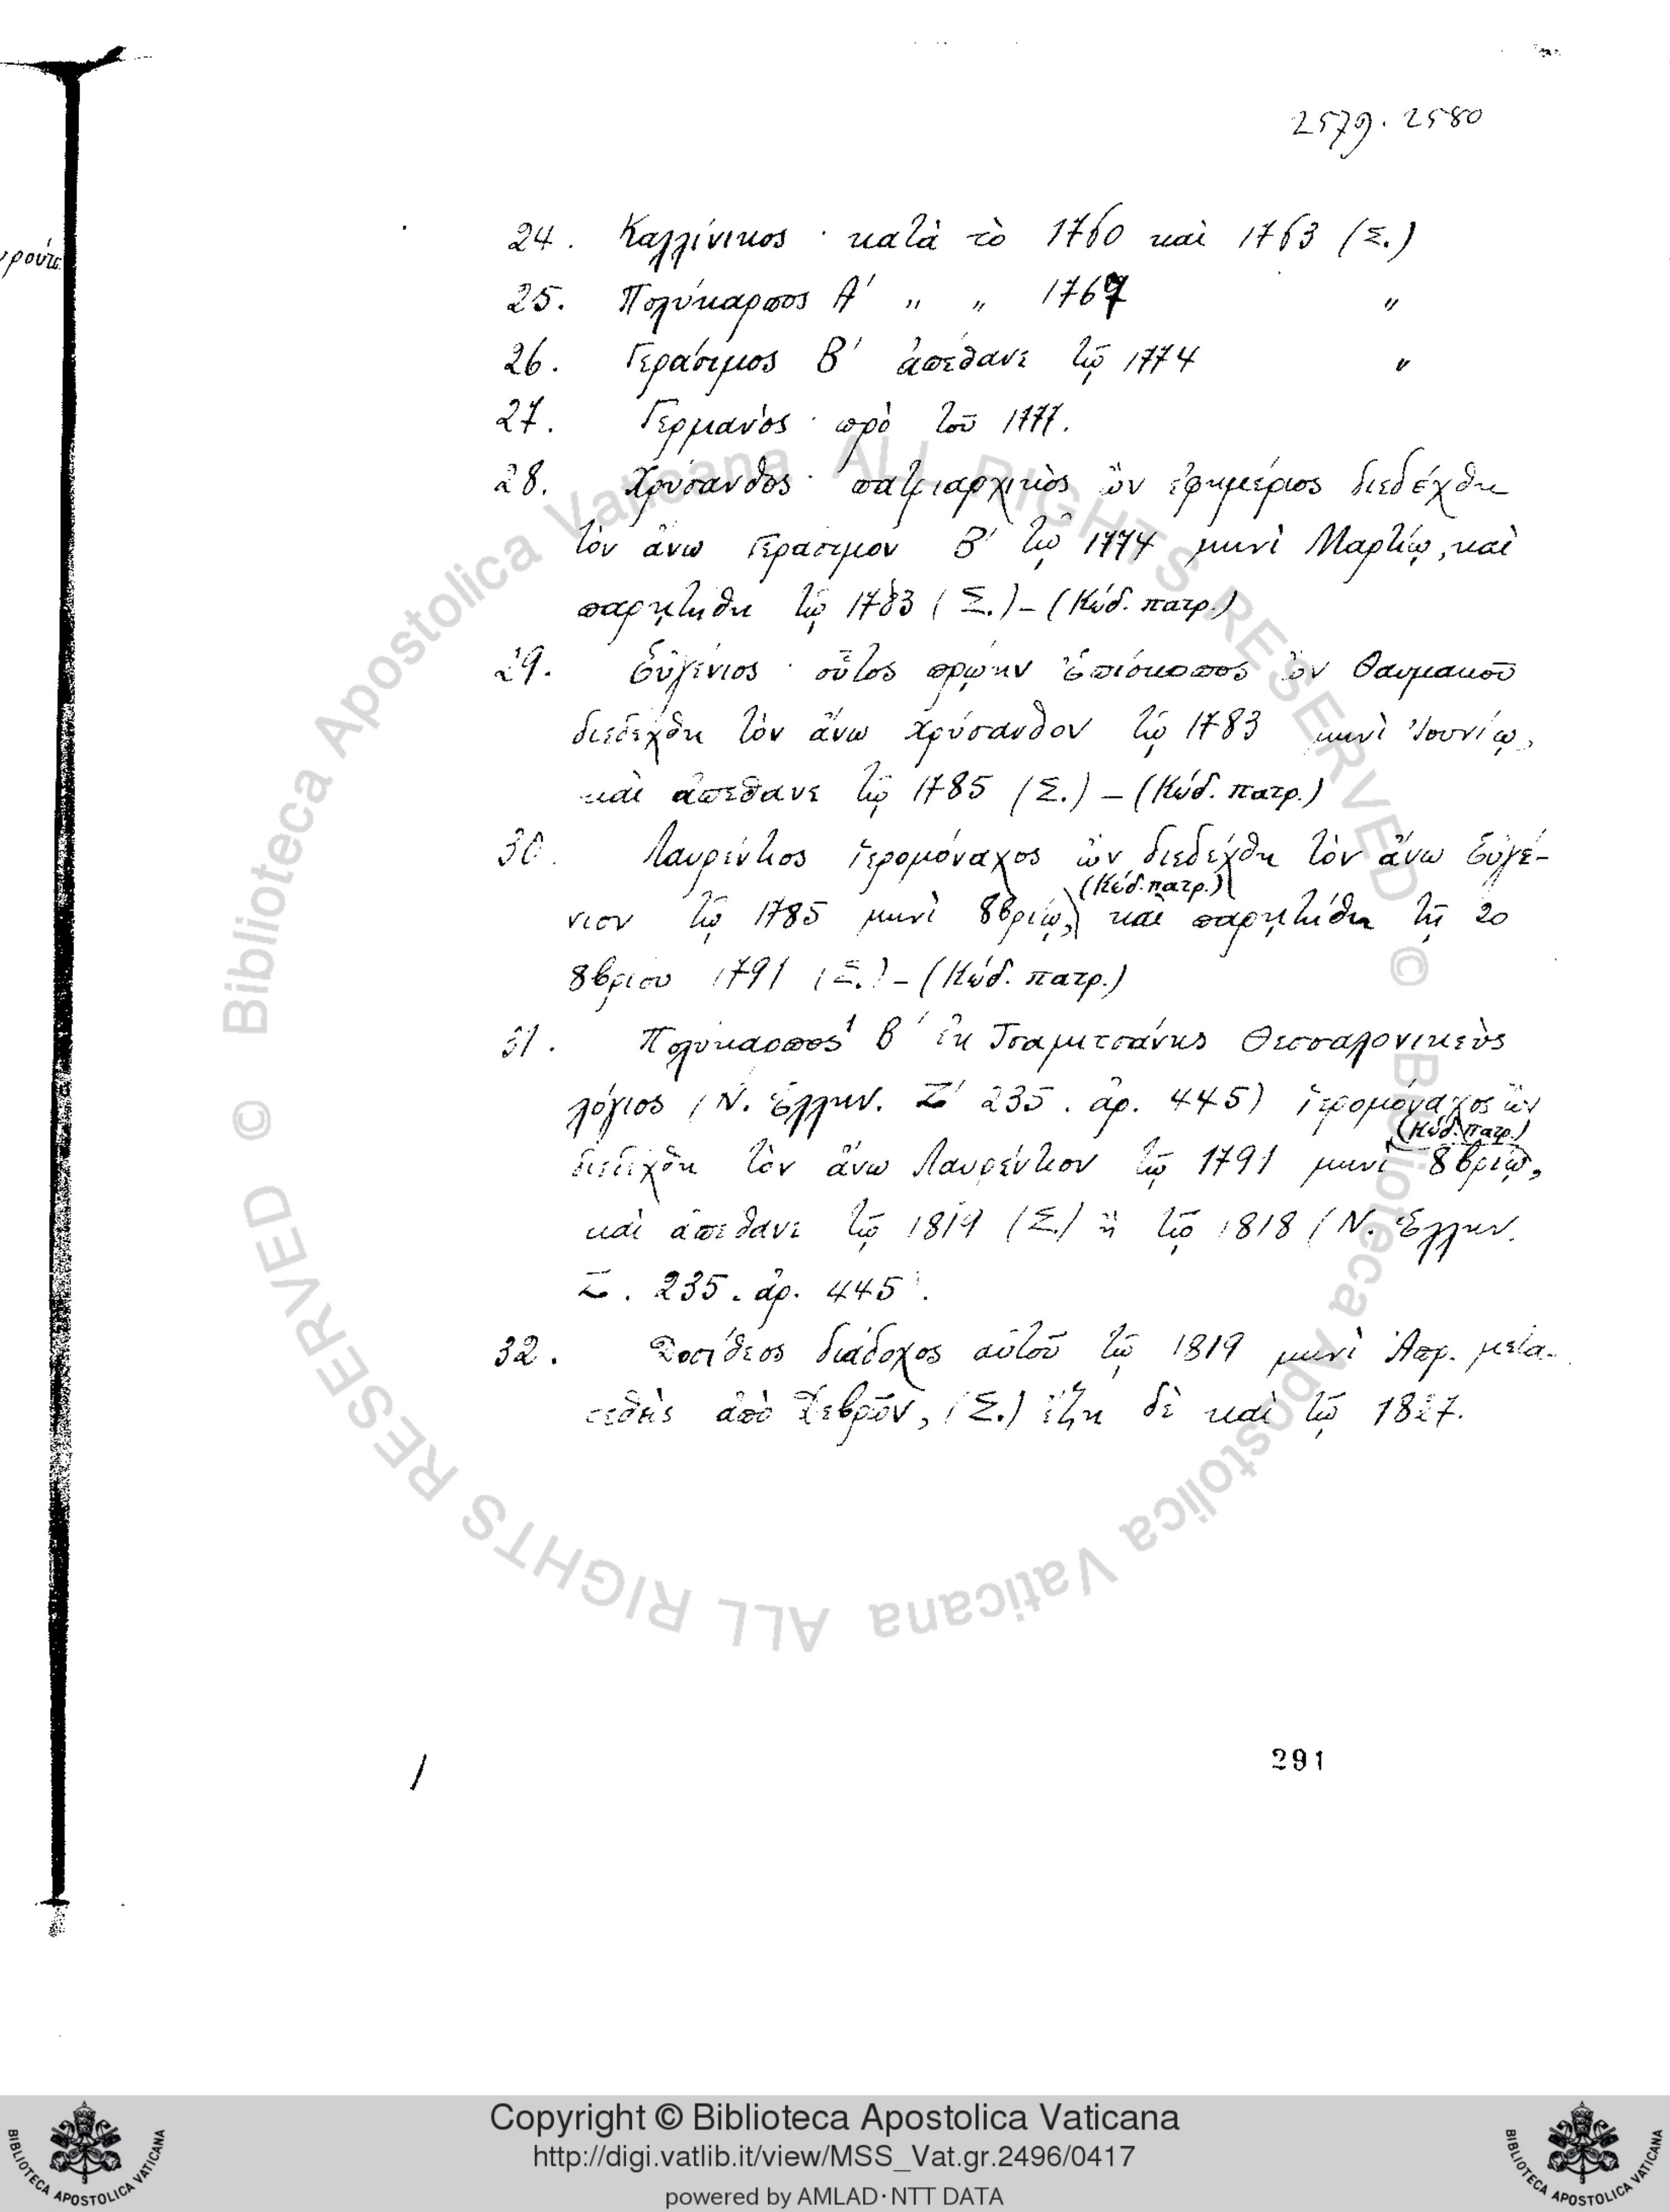 2579. 2580
ρούτε
24. Καλλίνικος · κατὰ τὸ 1760 καὶ 1763 (Σ.)
25. Πολύκαρπος Α΄ " " 1767 "
26. Γεράσιμος Β΄ ἀπέθανε τῷ 1774 "
27. Γερμανὸς · πρὸ τοῦ 1777.
28. Χρύσανθος · πατριαρχικὸς ὢν ἐφημέριος διεδέχθη
τὸν ἄνω Γεράσιμον Β΄ τῷ 1774 μηνὶ Μαρτίῳ, καὶ
παρῃτήθη τῷ 1783 (Σ.) – (Κώδ. πατρ.)
29. Εὐγένιος · οὗτος πρῴην Ἐπίσκοπος ὢν Θαυμακοῦ
διεδέχθη τὸν ἄνω Χρύσανθον τῷ 1783 μηνὶ Ἰουνίῳ,
καὶ ἀπέθανε τῷ 1785 (Σ.) – (Κώδ. πατρ.)
30. Λαυρέντιος ἱερομόναχος ὢν διεδέχθη τὸν ἄνω Εὐγέ-
(Κώδ. πατρ.)
νιον τῷ 1785 μηνὶ 8βρίῳ, καὶ παρῃτήθη τῇ 20
8βρίου 1791 (Σ.) – (Κώδ. πατρ.)
31. Πολύκαρπος Β΄ ἐκ Τσαμιτσάνης Θεσσαλονικεὺς
λόγιος (Ν. Ἑλλην. Σ΄ 235. ἀρ. 445) ἱερομόναχος ὢν
(Κώδ. πατρ.)
διεδέχθη τὸν ἄνω Λαυρέντιον τῷ 1791 μηνὶ 8βρίῳ,
καὶ ἀπέθανε τῷ 1819 (Σ.) ἢ τῷ 1818 (Ν. Ἑλλην.
Σ. 235. ἀρ. 445).
32. Δοσίθεος διάδοχος αὐτοῦ τῷ 1819 μηνὶ Ἀπρ. μετα-
τεθεὶς ἀπὸ Δεβρῶν, (Σ.) ἔζη δὲ καὶ τῷ 1827.
291
© Biblioteca Apostolica Vaticana ALL RIGHTS RESERVED
© Biblioteca Apostolica Vaticana ALL RIGHTS RESERVED
Copyright © Biblioteca Apostolica Vaticana
http://digi.vatlib.it/view/MSS_Vat.gr.2496/0417
powered by AMLAD·NTT DATA
BIBLIOTECA APOSTOLICA VATICANA
BIBLIOTECA APOSTOLICA VATICANA